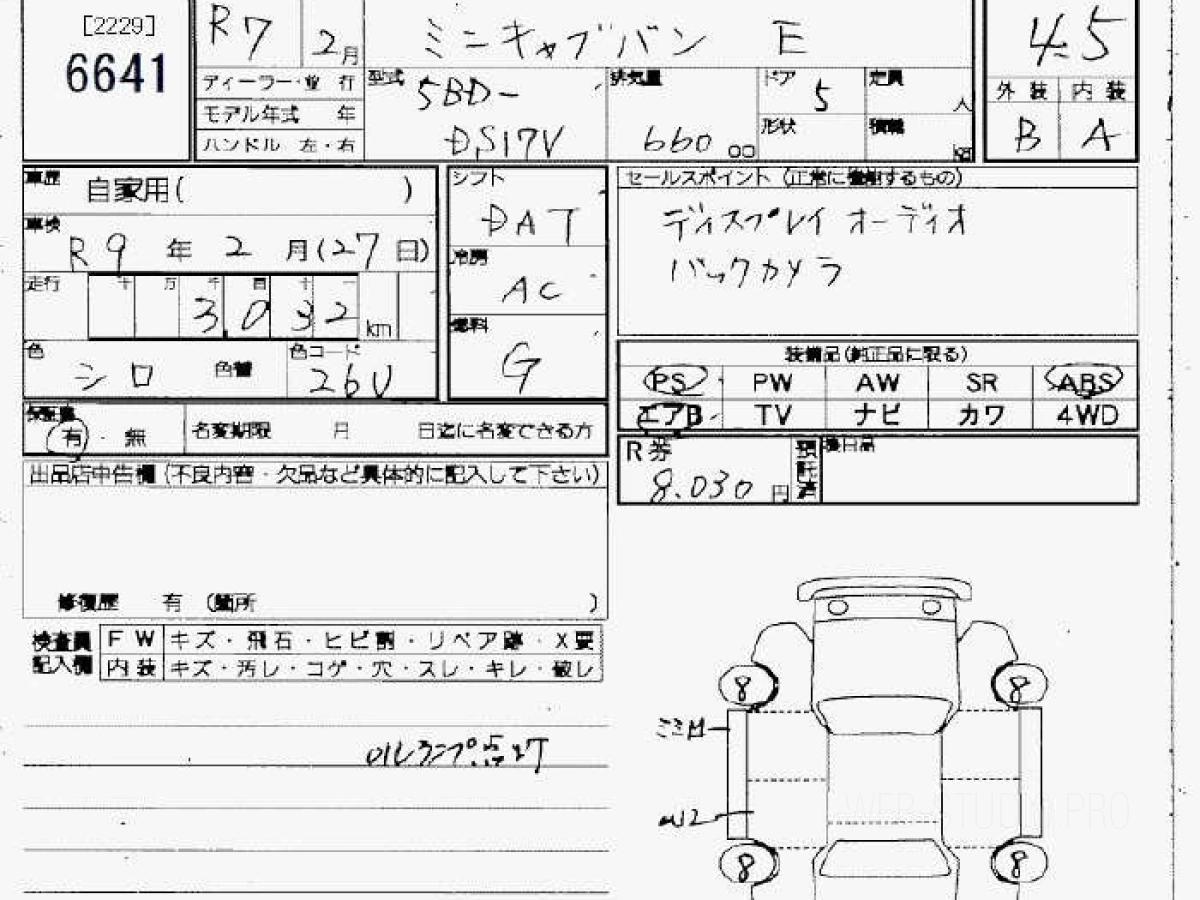 [2229]
6641
R7 2月
ディーラー・並 行
モデル年式 年
ハンドル 左・右
ミニキャブバン E
型式 5BD-
DS17V
排気量 660 cc
ドア 5
形状
定員 人
積載 kg
4.5
外 装 内 装
B A
車歴 自家用( )
車検 R9 年 2 月(27日)
走行 千 万 千 百 十 一
3,032 km
色 シロ 色替 色コード 26U
シフト DAT
冷房 AC
燃料 G
セールスポイント (正常に機能するもの)
ディスプレイオーディオ
バックカメラ
装備品(純正品に限る)
PS PW AW SR ABS
エアB TV ナビ カワ 4WD
保証書 有・無 名変期限 月 日迄に名変できる方
R券 8.030 円 預託済 後日品
出品店申告欄(不良内容・欠品など具体的に記入して下さい)
修復歴 有 (箇所 )
検査員記入欄
FW キズ・飛石・ヒビ割・リペア跡・X要
内装 キズ・汚レ・コゲ・穴・スレ・キレ・破レ
OILランプ点灯
8 8
8 8
WEB-STUDIO PRO